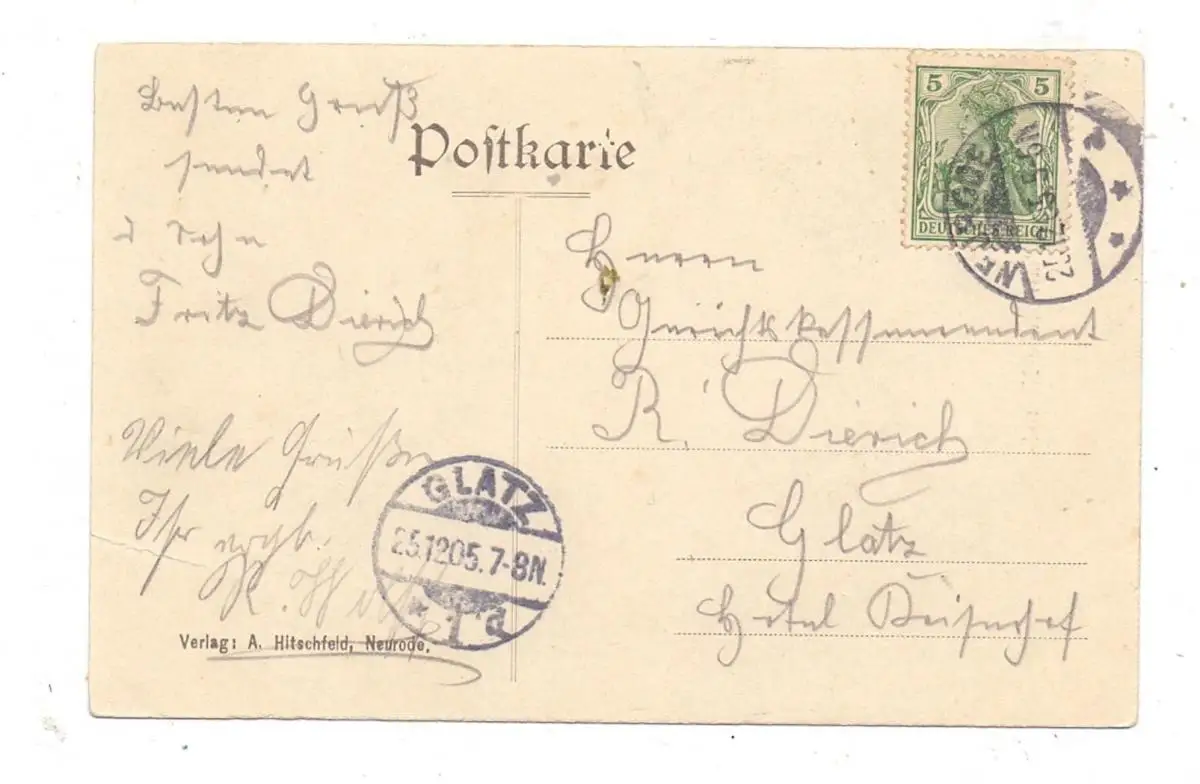 Besten Gruß
sendet
Sohn
Fritz Dierich
Viele Grüße
Ihr ergb.
Postkarte
Herrn
R. Dierich
Glatz
Hotel Kaiserhof
5 5
DEUTSCHES REICH
NEURODE
GLATZ
25.12.05.7-8N.
* 1 a
Verlag: A. Hitschfeld, Neurode.